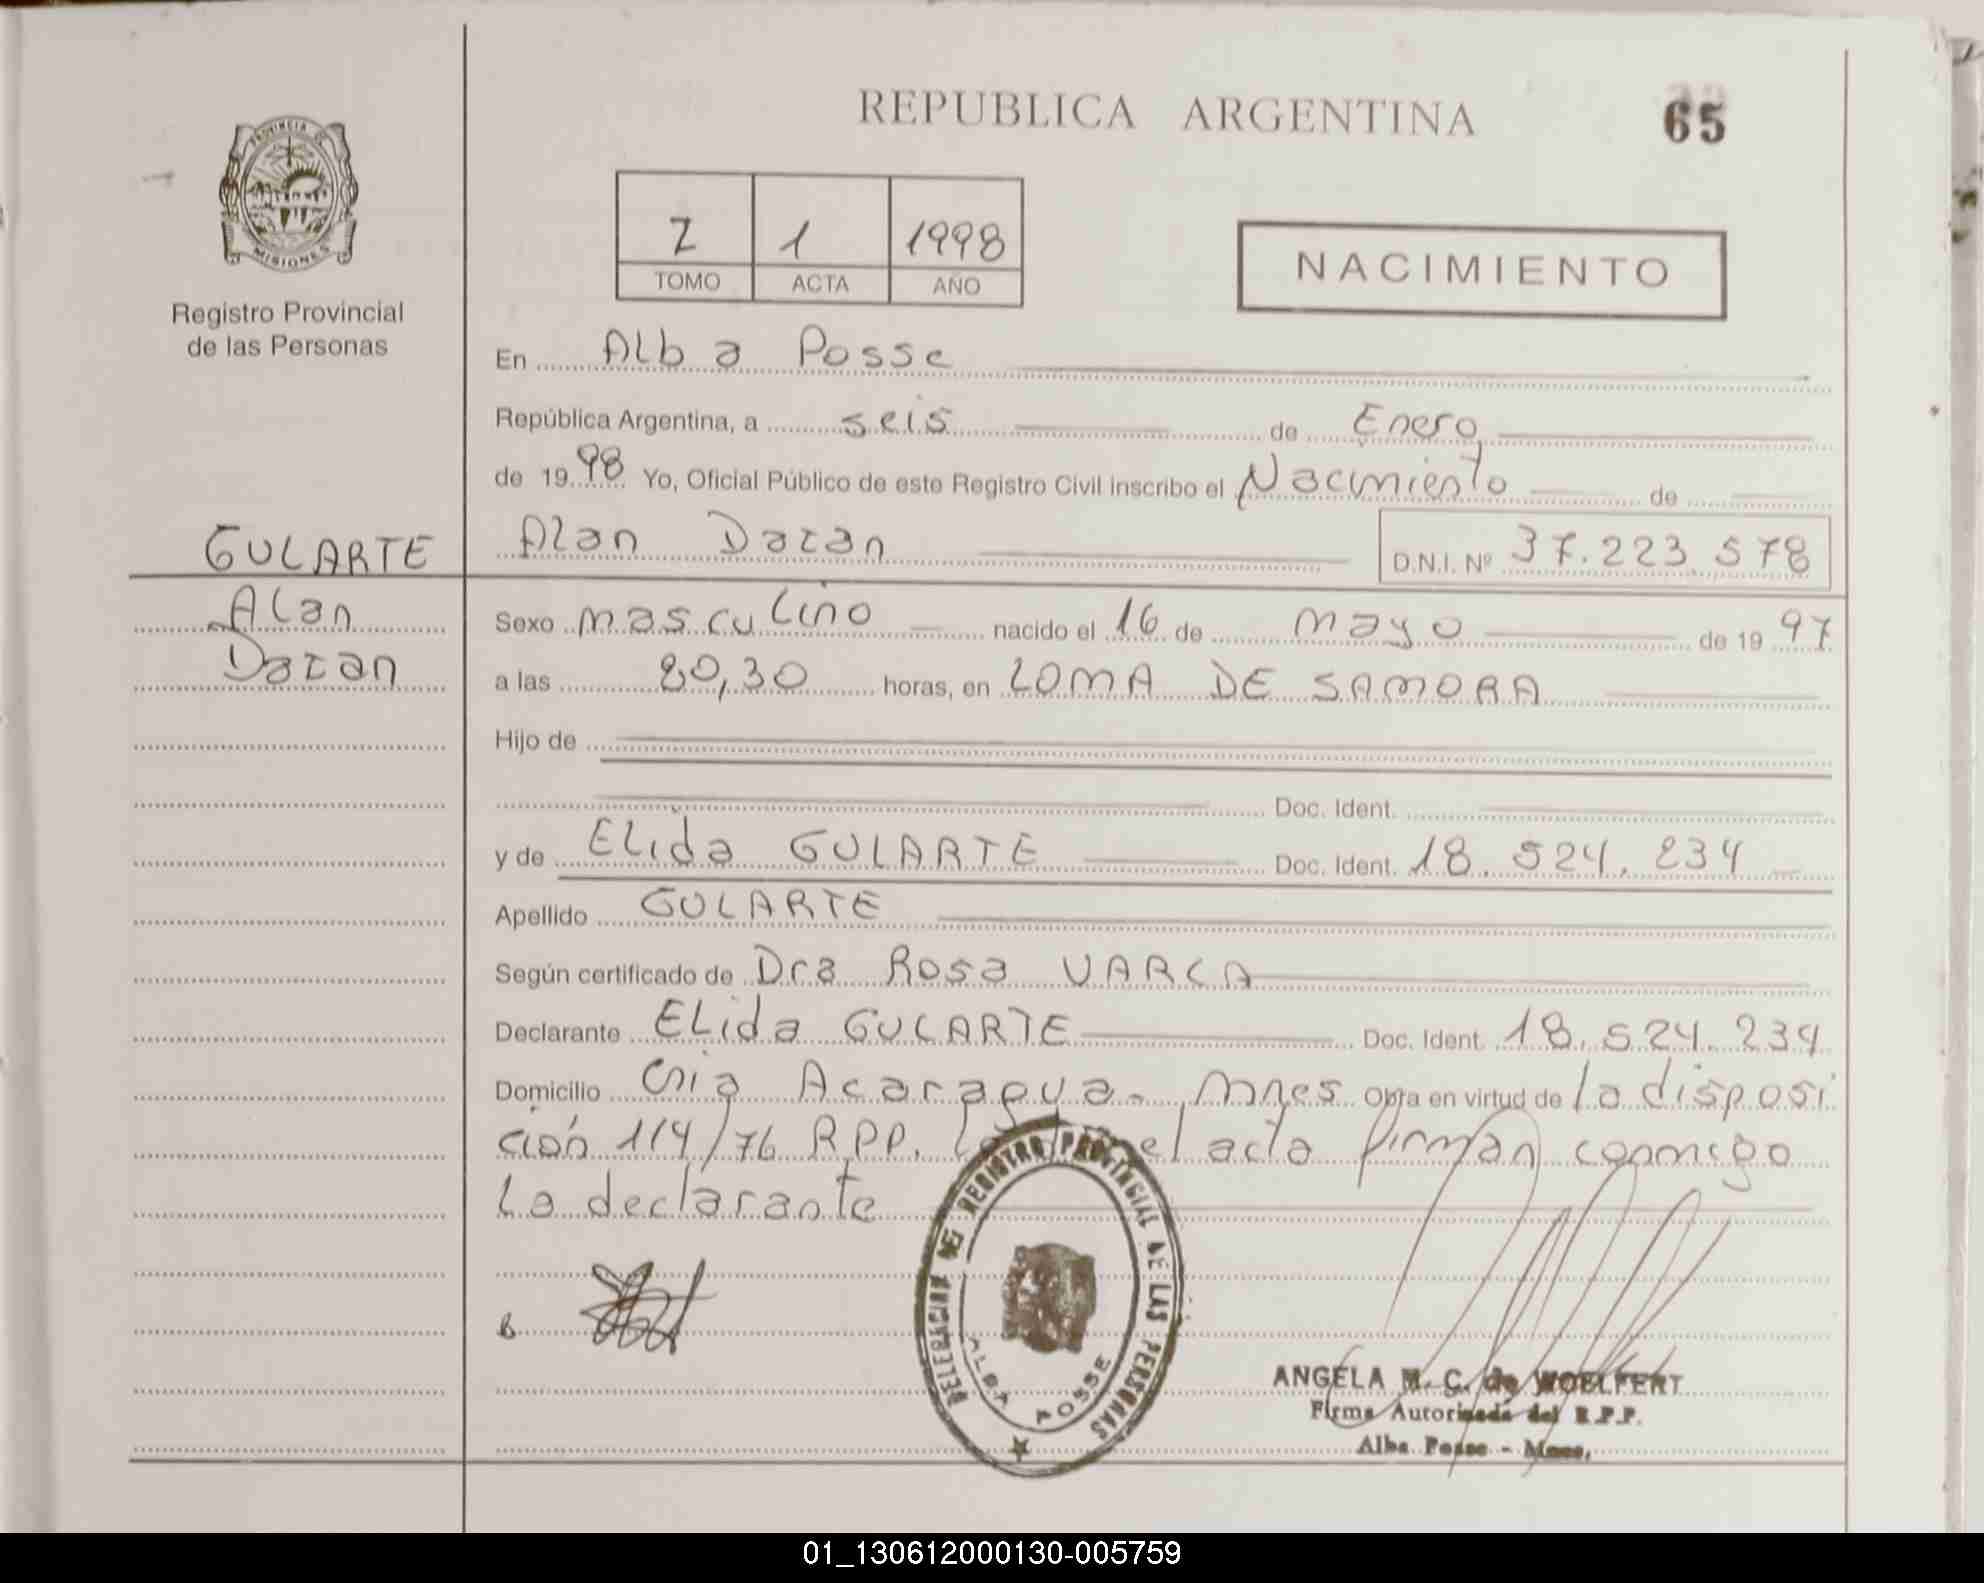 REPUBLICA ARGENTINA
65
PROVINCIA DE
MISIONES
Registro Provincial
de las Personas
2 1 1998
TOMO ACTA AÑO
NACIMIENTO
En Alba Posse
República Argentina, a seis de Enero
de 1998 Yo, Oficial Público de este Registro Civil inscribo el Nacimiento de
GULARTE
Alan Dazan D.N.I. Nº 37.223.578
Alan
Dazan
Sexo masculino nacido el 16 de mayo de 1997
a las 20,30 horas, en LOMA DE SAMORA
Hijo de
Doc. Ident.
y de Elida GULARTE Doc. Ident. 18.524.234
Apellido GULARTE
Según certificado de Dra Rosa VARCA
Declarante ELida GULARTE Doc. Ident. 18.524.234
Domicilio Cnia Acaragua- Mnes Obra en virtud de la disposi
ción 114/76 RPP. el acta firman conmigo
la declarante
DELEGACION DEL REGISTRO PROVINCIAL DE LAS PERSONAS
ALBA POSSE
ANGELA M. C. de WOELFERT
Firma Autorizada del R.P.P.
Alba Posse - Mnes.
01_130612000130-005759